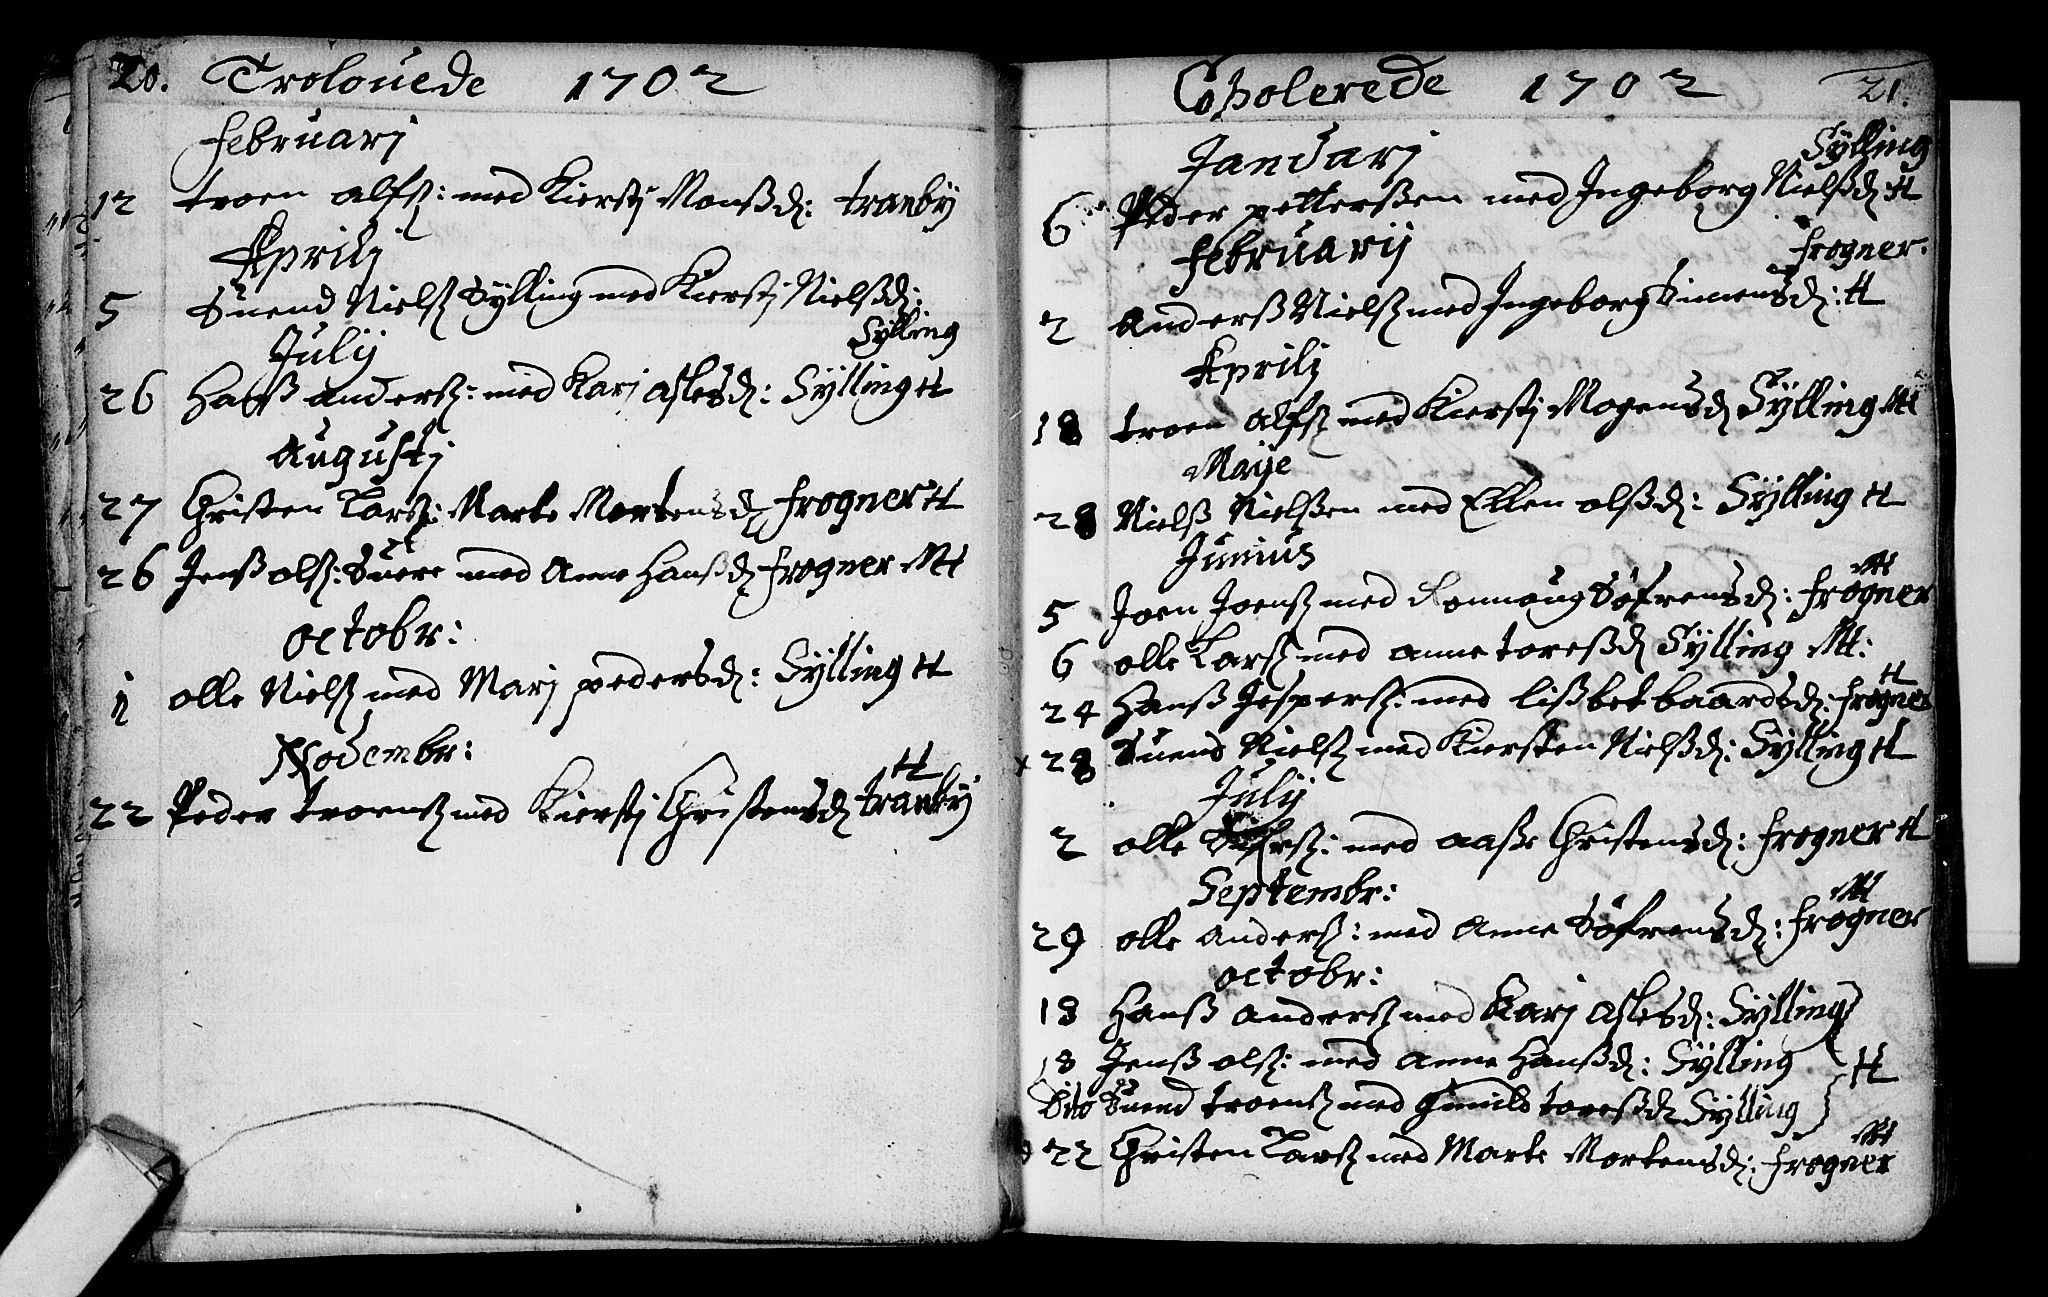 20. Trolouede 1702
februarj
12 troen alfs: med Kierstj Monsd: tranby
Aprilj
5 Suend Niels Sylling med Kierstj Nielsd:
Sylling
Julij
26 Hans anders: med Karj aslesd: Sylling
Augustj
27 Christen Lars: Marte Mortensd frogner
26 Jens ols: med Anne Hansd frogner
octobr:
1 olle Niels med Marj pedersd: Sylling
Novembr:
22 Peder troens med Kierstj Christensd tranby
Copolerede 1702 21.
Januarj
Sylling
6 Peder petterßen med Jngeborg Nielsd:
februarij
frogner.
2 Anderß Niels med Jngeborg Simensd:
Aprilj
18 troen alfs med Kierstj Mogensd Sylling
Maye
28 Nielß Nielßen med Ellen olsd: Sylling
Junius
5 Joen Joens med Ronnoug Söfrensd: frogner
6 olle Lars med anne toresd Sylling
24 Hanß Jespers: med lißbet baardsd: frogner
28 Suend Niels med Kiersten Nielsd: Sylling
July
2 olle med aaße Christensd: frogner
Septembr:
29 olle anders: med Anne Söfrensd: frogner
octobr:
18 Hanß anders med Karj aslesd: Sylling
18 Jenß ols: med Anne Hansd: Sylling
Dito Suend troens med Gunild toresd Sylling
22 Christen Lars med Marte Mortensd: frogner